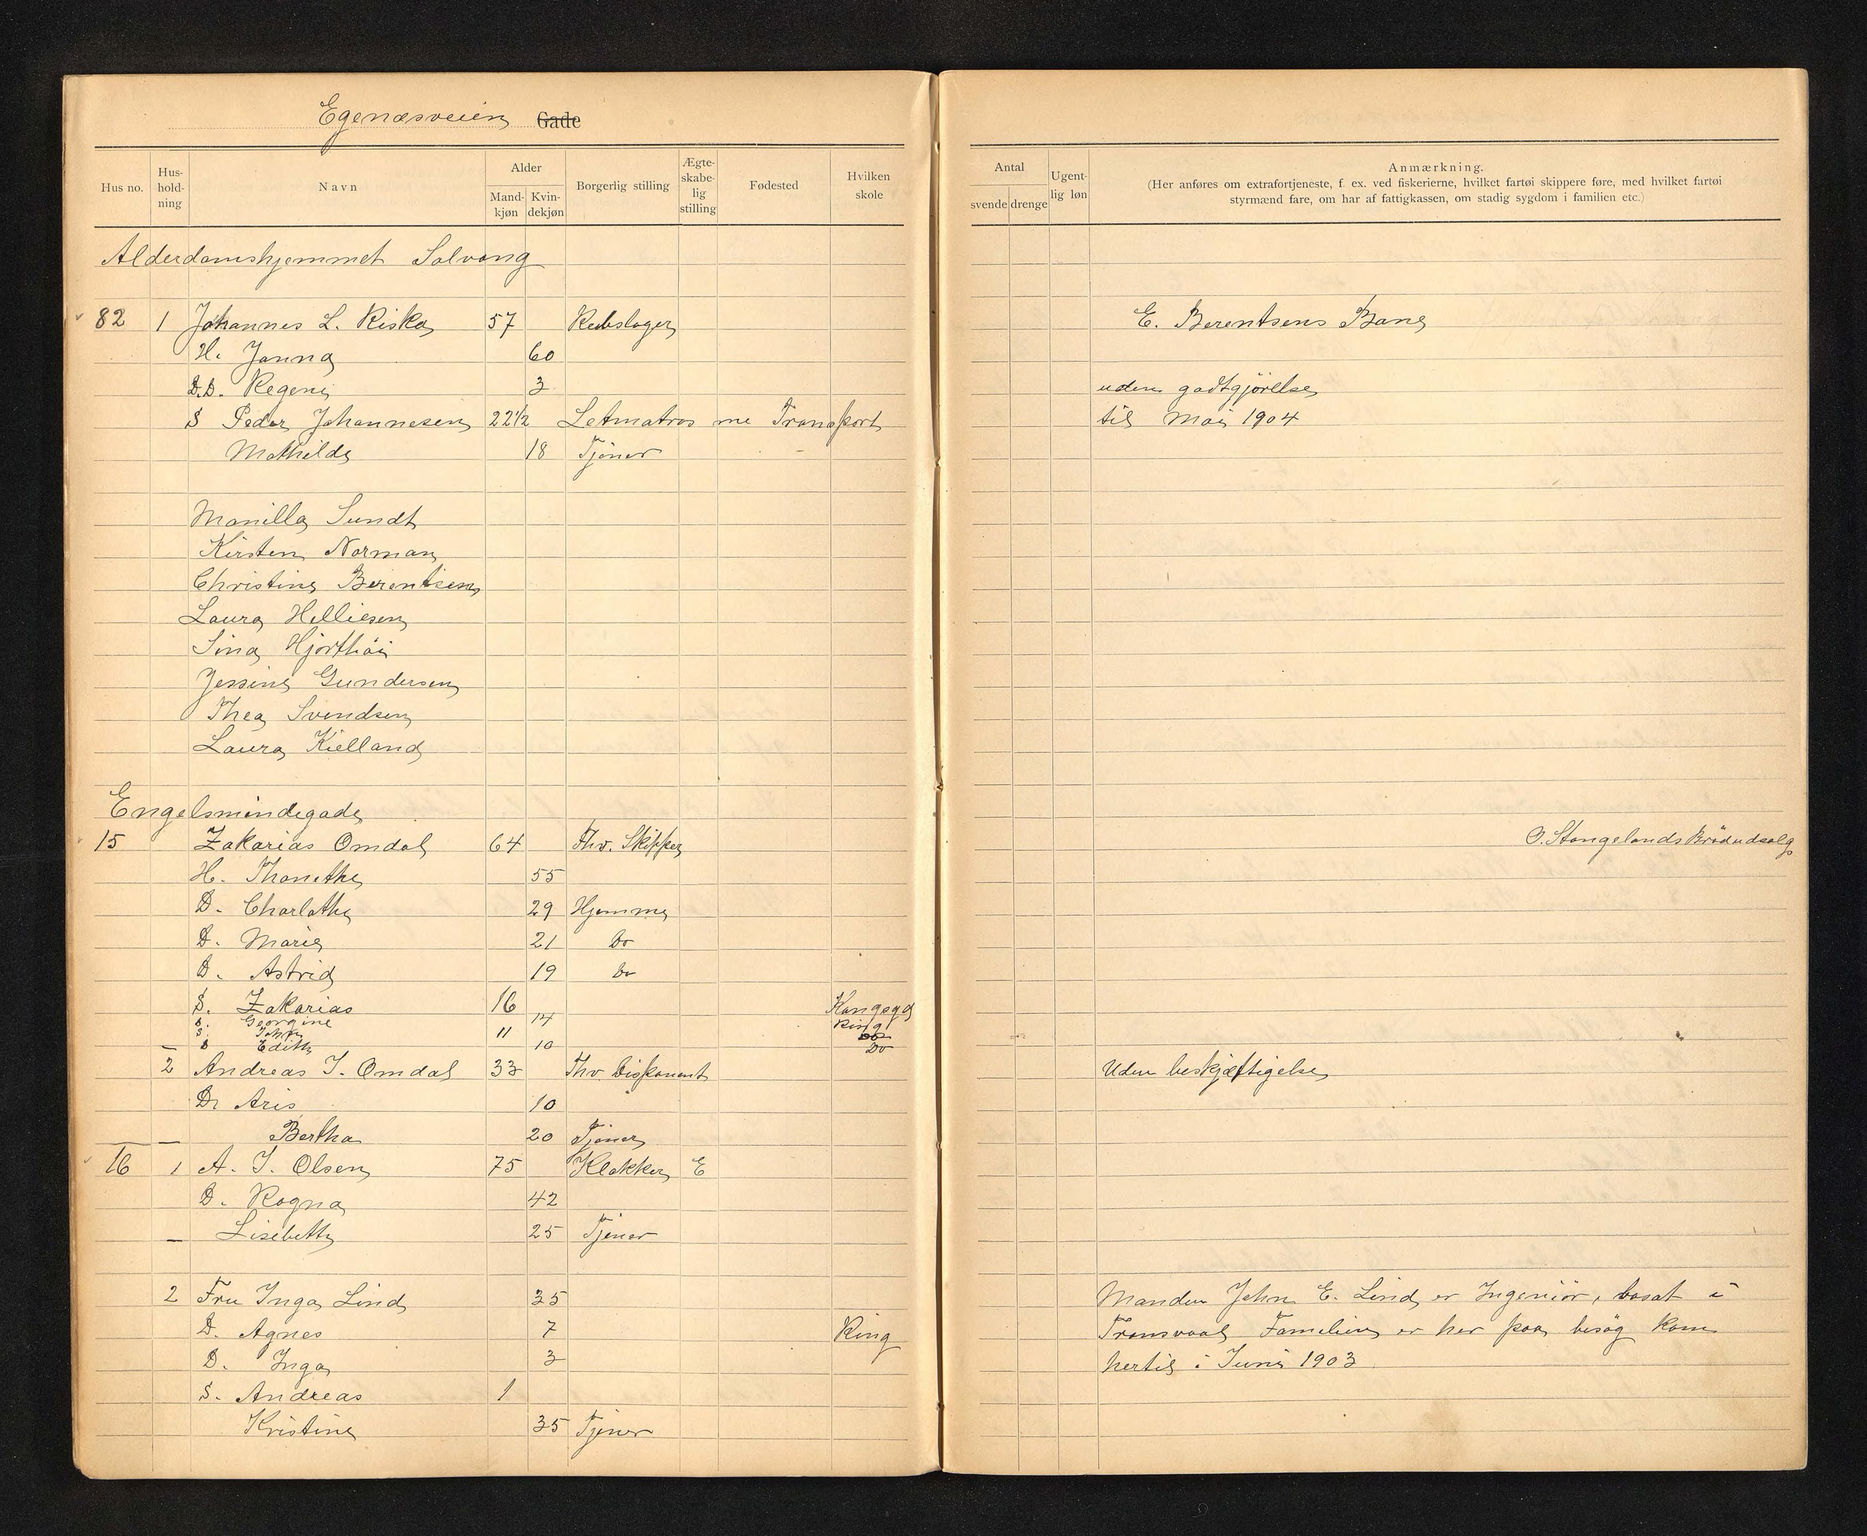 Egenæsveien Gade
Hus no.
Hus-
hold-
ning
Navn
Alder
Mand-
kjøn
Kvin-
dekjøn
Borgerlig stilling
Ægte-
skabe-
lig
stilling
Fødested
Hvilken
skole
Antal
svende
drenge
Ugent-
lig løn
Anmærkning.
(Her anføres om extrafortjeneste, f. ex. ved fiskerierne, hvilket fartøi skippere føre, med hvilket fartøi
styrmænd fare, om har af fattigkassen, om stadig sygdom i familien etc.)
Alderdomshjemmet Solvang
82 1 Johannes L. Riska 57 Rebslager E. Berentsens Bane
H. Janna 60
D.D. Regine 3 uden godtgjörelse
S Peder Johannesen 22½ Letmatros me Transport til Mai 1904
Mathilde 18 Tjener
Manilla Sundt
Kirsten Norman
Christine Berentsen
Laura Helliesen
Sina Hjorthöi
Jessine Gundersen
Thea Svendsen
Laura Kielland
Engelsmindegade
15 Zakarias Omdal 64 Fhv. Skipper O. Stangelands Brödudsalg
H. Thonethe 55
D. Charlothe 29 Hjemme
D. Marie 21 Do
D. Astrid 19 Do
S. Zakarias 16 Kongsgd
D. Georgine 14 Ring
S. John 11 Do
D Edith 10 Do
2 Andreas I. Omdal 33 Fhv. Disponent Uden beskjæftigelse
D. Aris 10
Bertha 20 Tjener
16 1 A. I. Olsen 75 Klokker E
D. Ragna 42
Lisebeth 25 Tjener
2 Fru Inga Lind 35 Manden John E. Lind er Ingeniör, bosat i
D. Agnes 7 Ring Transvaal Familien er her paa besög kom
D. Inga 3 hertil i Juni 1903
S. Andreas 1
Kristine 35 Tjener